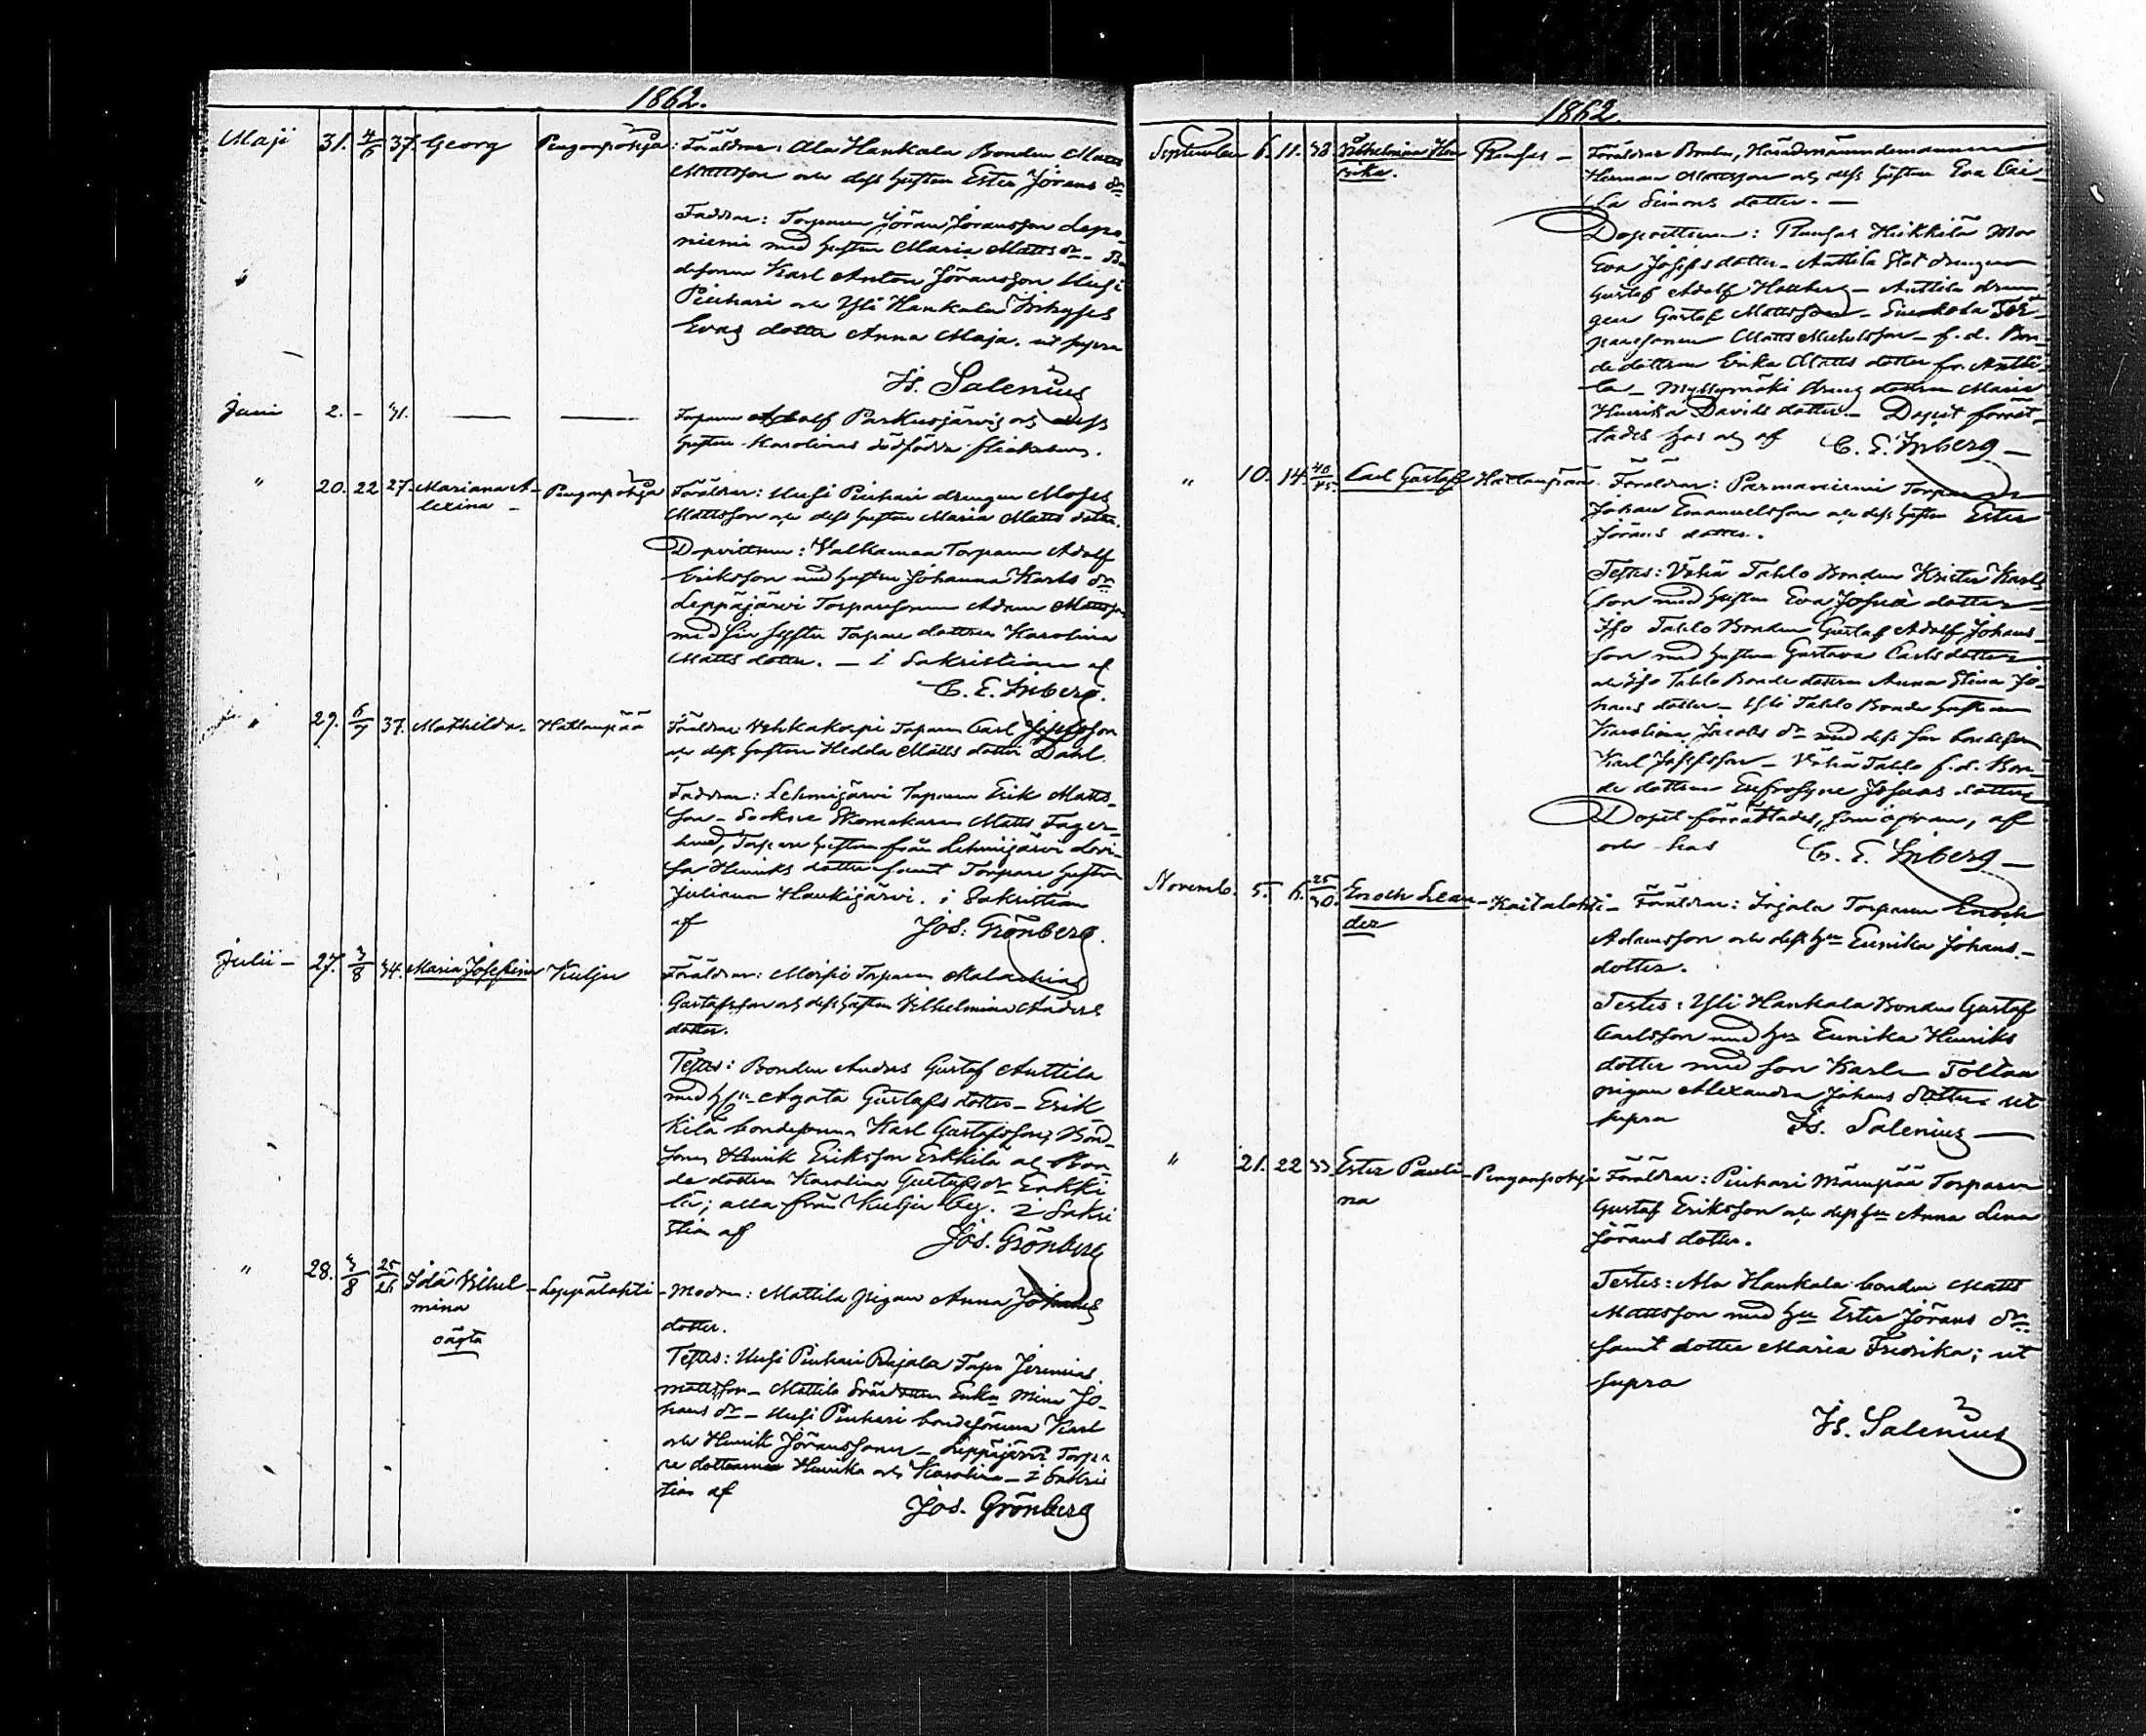 1862.
Maji 31. 4/6 37. Georg Pengonpohja: Föräldrar: Ala Hankala Bonden Matts
Mattsson och dess hustru Ester Jörans dr
Faddrar: Torparen Jöran Jöransson Lepo-
niemi med hustru Maria Matts dr - Bon
desonen Karl Anton Jöransson Uusi
Pinhari och Yli Hankala
Evas dotter Anna Maja. ut supra
Is. Salenius
Juni 2. - 41. — — Torparen Adolf Parkusjärvis och dess
hustru Karolinas dödfödda flickebarn.
" 20. 22 27. Mariana A- Pengonpohja Föräldrar: Uusi Pinhari drengen Moses
lexina - Mattsson och dess hustru Maria Matts dotter.
Dopvittnen: Valkamaa Torparen Adolf
Eriksson med hustru Johanna Karls dr
Leppäjärvi Torparsonen Adam Mattsson
med sin syster Torpare dottren Karolina
Matts dotter. — i Sakristian af
C. E. Inberg.
" 29. 6/7 37. Mathilda - Hattanpää Föräldrar: Torparen Carl Josefsson
och dess hustru Hedda Matts dotter Dahl.
Faddrar: Lehmijärvi Torparen Erik Matts-
son - Skomakaren Matts Fager-
lund, Torpare hustrun från Lehmijärvi Lovi-
sa Henriks dotter samt Torpare hustru
Juliana Haukijärvi. i Sakristian
af Jos: Grönberg.
Julii - 27. 3/8 34. Maria Josefina Kulju Föräldrar: Moisio Torparen Malachias
Gustafsson och dess hustru Vilhelmina Anders
dotter.
Testes: Bonden Anders Gustaf Anttila
med hu Agata Gustafs dotter - Erik
kilä bondesonen Karl Gustafsson, Bond
sonen Henrik Eriksson Erkkilä och Bon
de dottren Karolina Gustafs dr Erkki
lä; alla från Kulju by. i Sakri
stian af Jos. Grönberg
" 28. 3/8 25/26 Ida Vilhel- Leppälahti - Modren: Mattila pigan Anna Johans
mina dotter.
oägta
Testes: Uusi Pinhari Torp. Jeremias
Mattsson - Mattila Enka Mina Jo-
hans dr - Uusi Pinhari bondesönerna Karl
och Henrik Jöranssoner - Leppäjärvi Torpa
re dottrarna Henrika och Karolina - i Sakri
stian af Jos. Grönberg
1862.
September 6. 11. 38 Vilhelmina Hen Rengas - Föräldrar Bonden, Häradsnämndemannen
rika. Herman Mattsson och dess hustru Eva Cai-
sa Simons dotter. —
Dopvittnen: Rengas Heikkilä Mor
Eva Josefs dotter - Anttila Stat drengen
Gustaf Adolf Hallberg - Anttila dren
gen Gustaf Mattsson - Tor-
paresonen Matts Michelsson - f. d. Bon-
de dottren Erika Matts dotter fr. Antti-
la - Myllymäki dreng dottren Maria
Henrika Davids dotter. — Dopet förrät-
tades hos och af C. E. Inberg —
" 10. 14. 40/45. Carl Gustaf Hattanpää Föräldrar: Parmaniemi Torparen
Johan Emanuelsson och dess hustru Ester
Jörans dotter.
Testes: Vähä Tahlo Bonden Krister Karls
son med hustru Eva Josua dotter —
Iso Tahlo Bonden Gustaf Adolf Johans-
son med hustru Gustava Carls dotter —
och Iso Tahlo Bonde dottren Anna Stina Jo-
hans dotter - Yli Tahlo Bonde hustrun
Karolina Jacobs dr med dess son bondeson
Karl Josefsson - Vähä Tahlo f. d. Bon-
de dottren Eufrosyne Josuas dotter
Dopet förrättades, som ofvan, af
och hos C. E. Inberg —
Novemb. 5. 6. 25/30. Enoch Lean- Kaitalahti - Föräldrar: Isojala Torparen Enoch
der Adamsson och dess hu Eunika Johans-
dotter.
Testes: Yli Hankala Bonden Gustaf
Carlsson med hu Eunika Henriks
dotter med son Karl -
pigan Alexandra Johans dotter ut
supra Is. Salenius —
" 21. 22 33 Ester Pauli- Pengonpohja Föräldrar: Pinhari Mäenpää Torparen
na Gustaf Eriksson och dess hu Anna Lena
Jörans dotter.
Testes: Ala Hankala bonden Matts
Mattsson med hu Ester Jörans dr
samt dotter Maria Fredrika; ut
supra
Is. Salenius